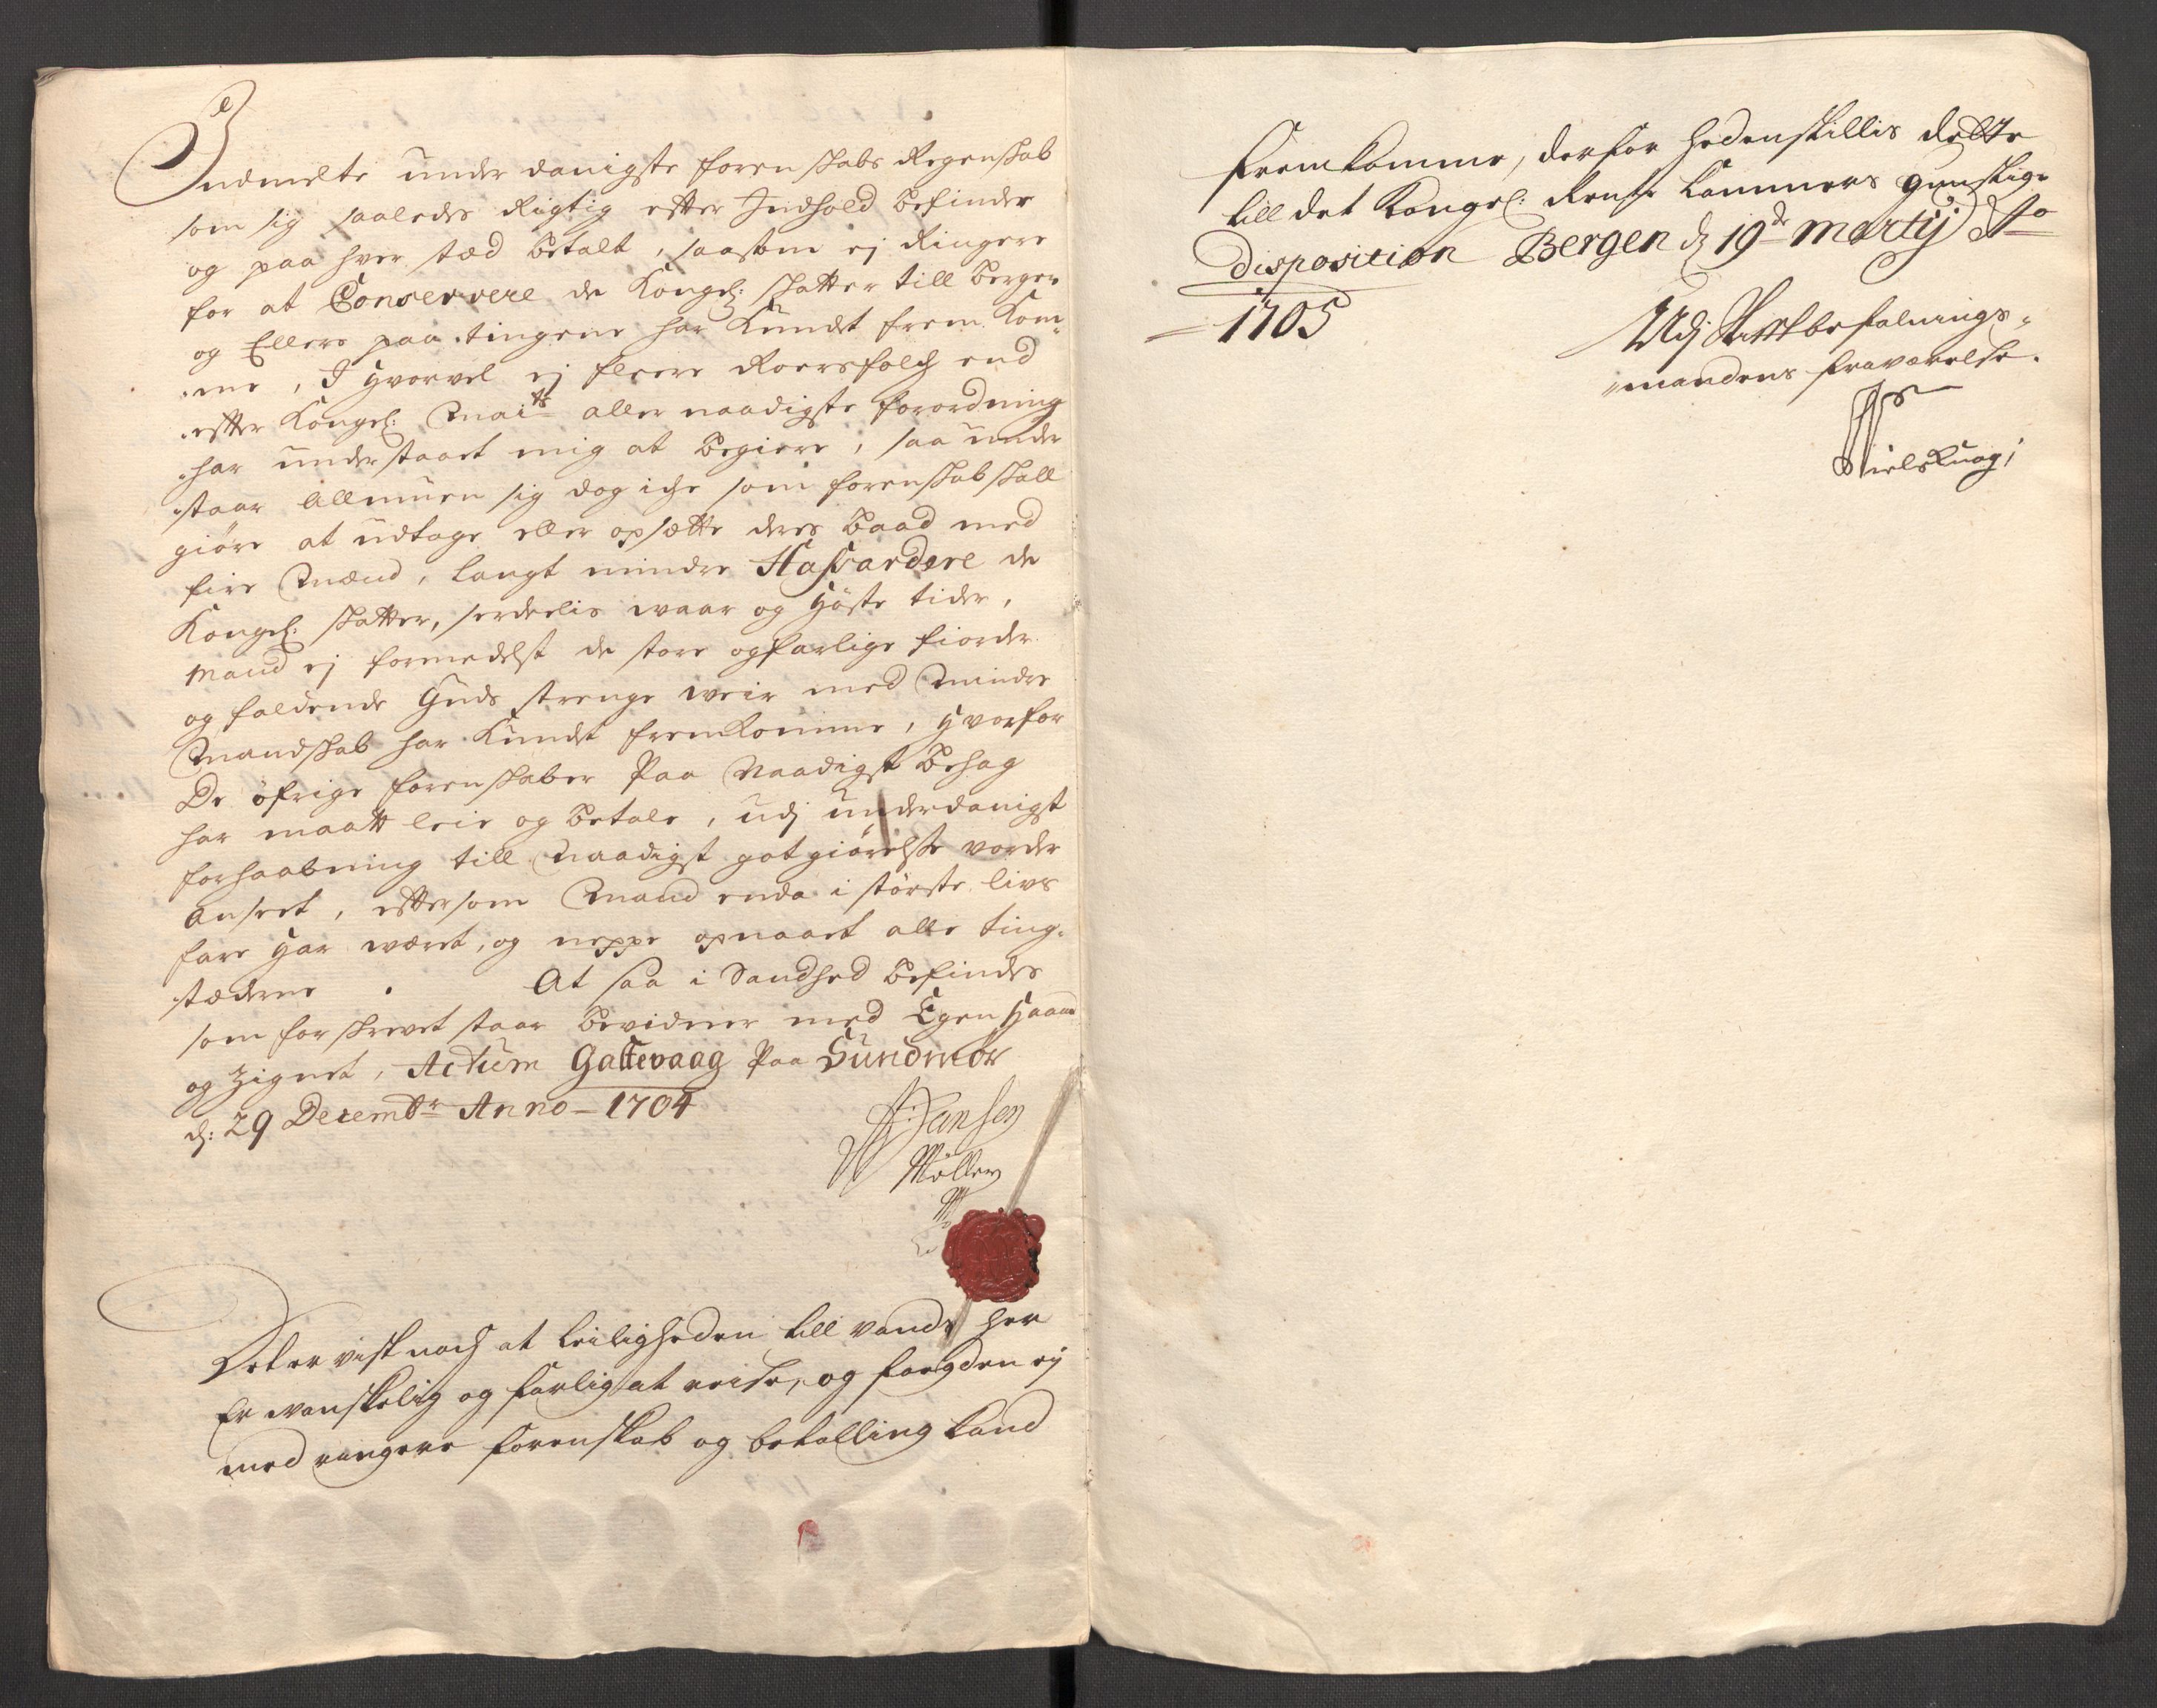 Indmelte under danigste forenskabs Regenskab
som sig saaledes Rigtig efter Indhold befinder
og paa hver stæd betalt, saasom ej Ringere
for at Conservere de Kongel: skatter till Bergen
og Ellers paa tingene har Kundet frem Kom-
me, I hvorvel ej fleere Roersfolch end
efter Kongel: Maits aller naadigste forordning
har understaaet mig at begiere, saa under
staar Allmuen sig dog iche som forenskab skall
giøre at udtage eller opsætte deres baad med
fire Mænd, langt mindre Hasardere de
Kongel: skatter, serdeelis waar og Høste tider,
Mand ej formedelst de store og farlige fiorder
og faldende Guds strenge weir med Mindre
Mandskab har Kundet fremkomme, hvorfor
De øfrige forenskaber Paa Naadigst Behag
har maatt leie og betale, udj underdanigst
forhaabning till Naadigst gotgiørelse vorder
Anseet, eftersom Mand enda i største livs
fare har wæret, og neppe opnaaet alle ting-
stæderne. At saa i Sandhed befindes
som forskrevet staar bevidner med Egen Haand
og Zignet, Actum Gattevaag Paa Sundmør
d: 29 Decembr Anno 1704
Jansen
Møller
Det er vist noch at leiligheden till vands her
Er wanskelig og farlig at reise, og fougden ej
med ringere forenskab og betalling kand
fremkomme, derfor hedenstillis dette
till det Kongel: Rente Cammers gunstige
disposition Bergen d 19de Martij Ao
1705
Udj Stiftbefalnings-
mandens fraværelse.
Niels Knag